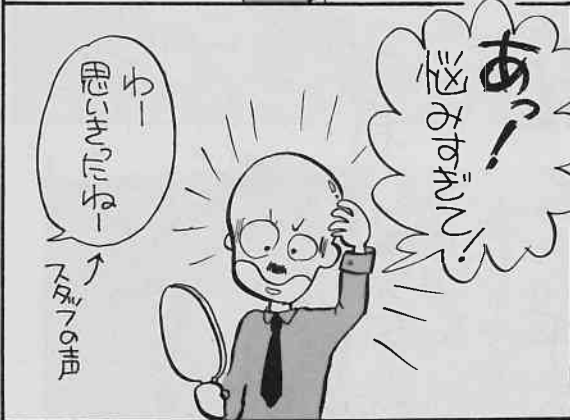 あっ！
悩みすぎて！
わー
思いきったねー
スタッフの声